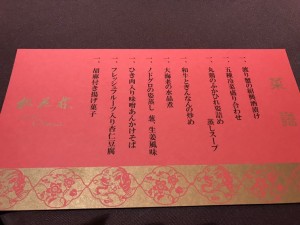 一、渡り蟹の紹興酒漬け
一、五種冷菜盛り合わせ
一、丸鶏のふかひれ姿詰め 蒸しスープ
一、和牛ときんなんの炒め
一、大海老の水晶煮
一、ノドグロの姿蒸し 葱、生姜風味
一、ひき肉入り味噌あんかけそば
一、フレッシュフルーツ入り杏仁豆腐
一、胡麻付き揚げ菓子